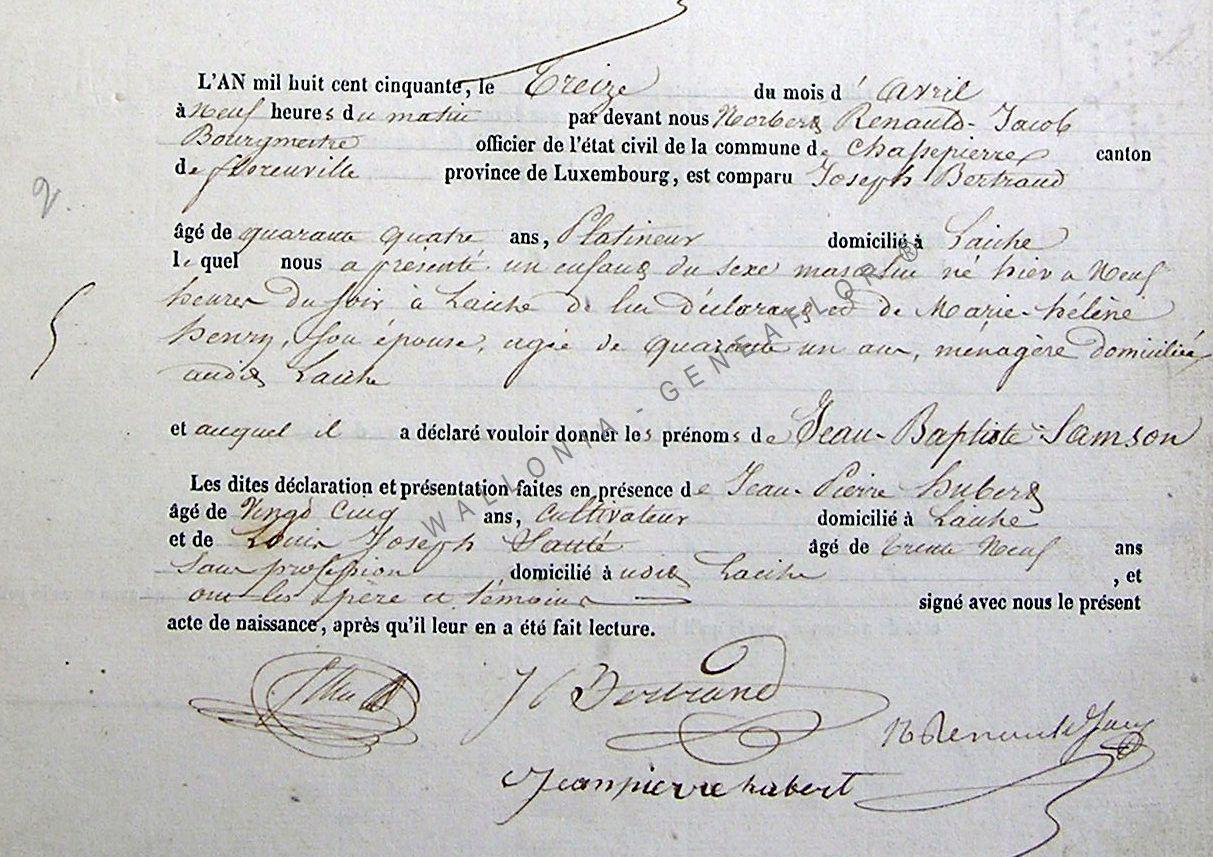 L'AN mil huit cent cinquante, le Treize du mois d'avril
à Neuf heures du matin par devant nous Norbert Renauld-Jacob
Bourgmestre officier de l'état civil de la commune de Chassepierre canton
de florenville province de Luxembourg, est comparu Joseph Bertrand
2.
âgé de quarante quatre ans, Platineur domicilié à Laiche
le quel nous a présenté un enfant du sexe masculin né hier à Neuf
heures du soir à Laiche de lui déclarant et de Marie-hélène
henry, son épouse, agée de quarante un ans, ménagère domiciliée
audit Laiche
et auquel il a déclaré vouloir donner les prénoms de Jean-Baptiste-Samson
Les dites déclaration et présentation faites en présence de Jean-Pierre hubert
âgé de Vingt cinq ans, cultivateur domicilié à Laiche
et de Louis Joseph âgé de trente Neuf ans
Sans profession domicilié à Laiche, et
ont les père et témoins signé avec nous le présent
acte de naissance, après qu'il leur en a été fait lecture.
J Bertrand
N Renauld Jacob
Jeanpierre hubert
WALLONIA - GENEAFLOR ®